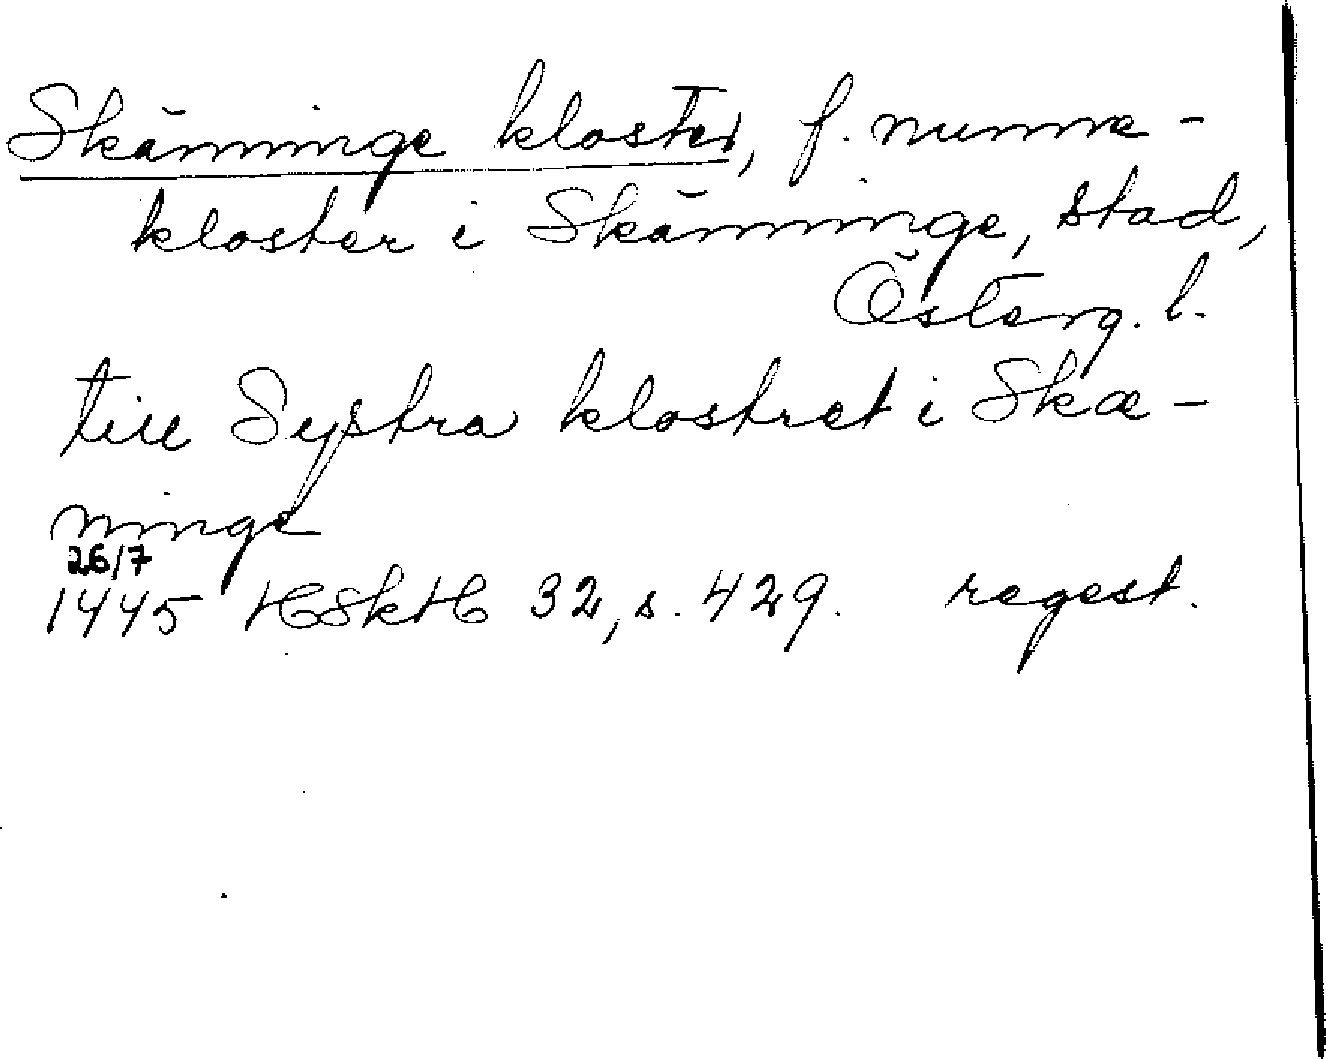 Skänninge kloster, f. nunne-
kloster i Skänninge, stad,
Österg. l.
till Systra klostret i Skæ-
ninge
26/7
1445 HSkH 32, s. 429. regest.